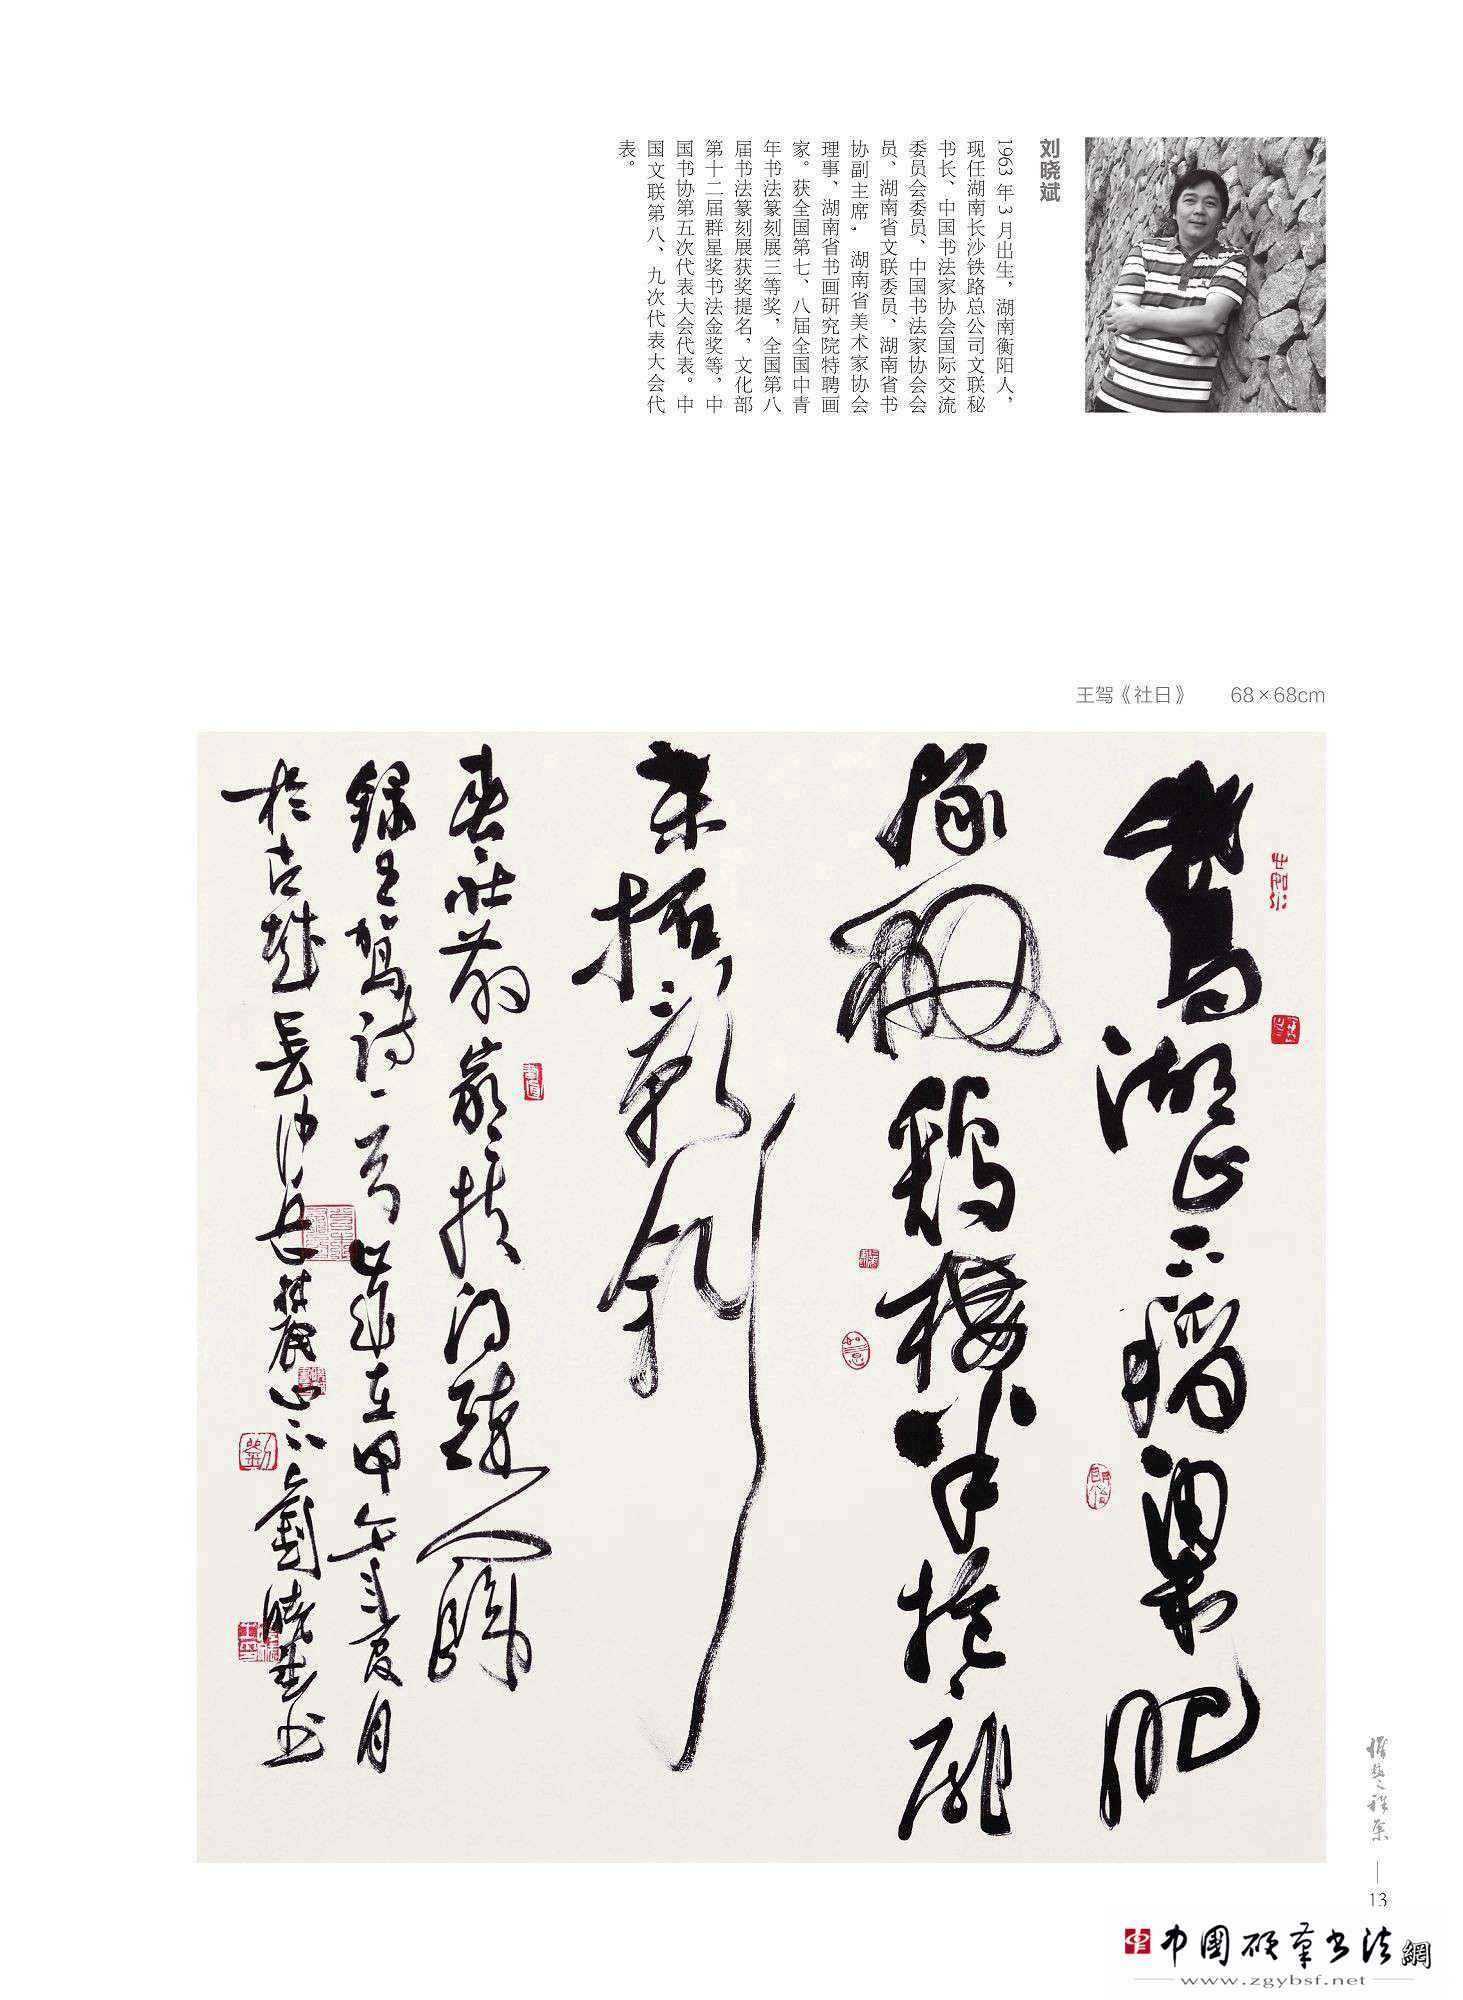 刘晓斌
1963 年 3 月出生，湖南衡阳人，
现任湖南长沙铁路总公司文联秘
书长、中国书法家协会国际交流
委员会委员、中国书法家协会会
员、湖南省文联委员、湖南省书
协副主席，湖南省美术家协会
理事、湖南省书画研究院特聘画
家。获全国第七、八届全国中青
年书法篆刻展三等奖，全国第八
届书法篆刻展获奖提名，文化部
第十二届群星奖书法金奖等，中
国书协第五次代表大会代表。中
国文联第八、九次代表大会代
表。
王驾《社日》 68×68cm
鵞湖山下稻粱肥
豚栅鷄棲半掩扉
桑柘影斜
春社散家々扶得醉人歸
録王駕詩一首歲在甲午年夏月
於古城長沙岳麓山下劉曉斌書
13
中国硬筆书法網
www.zgybsf.net